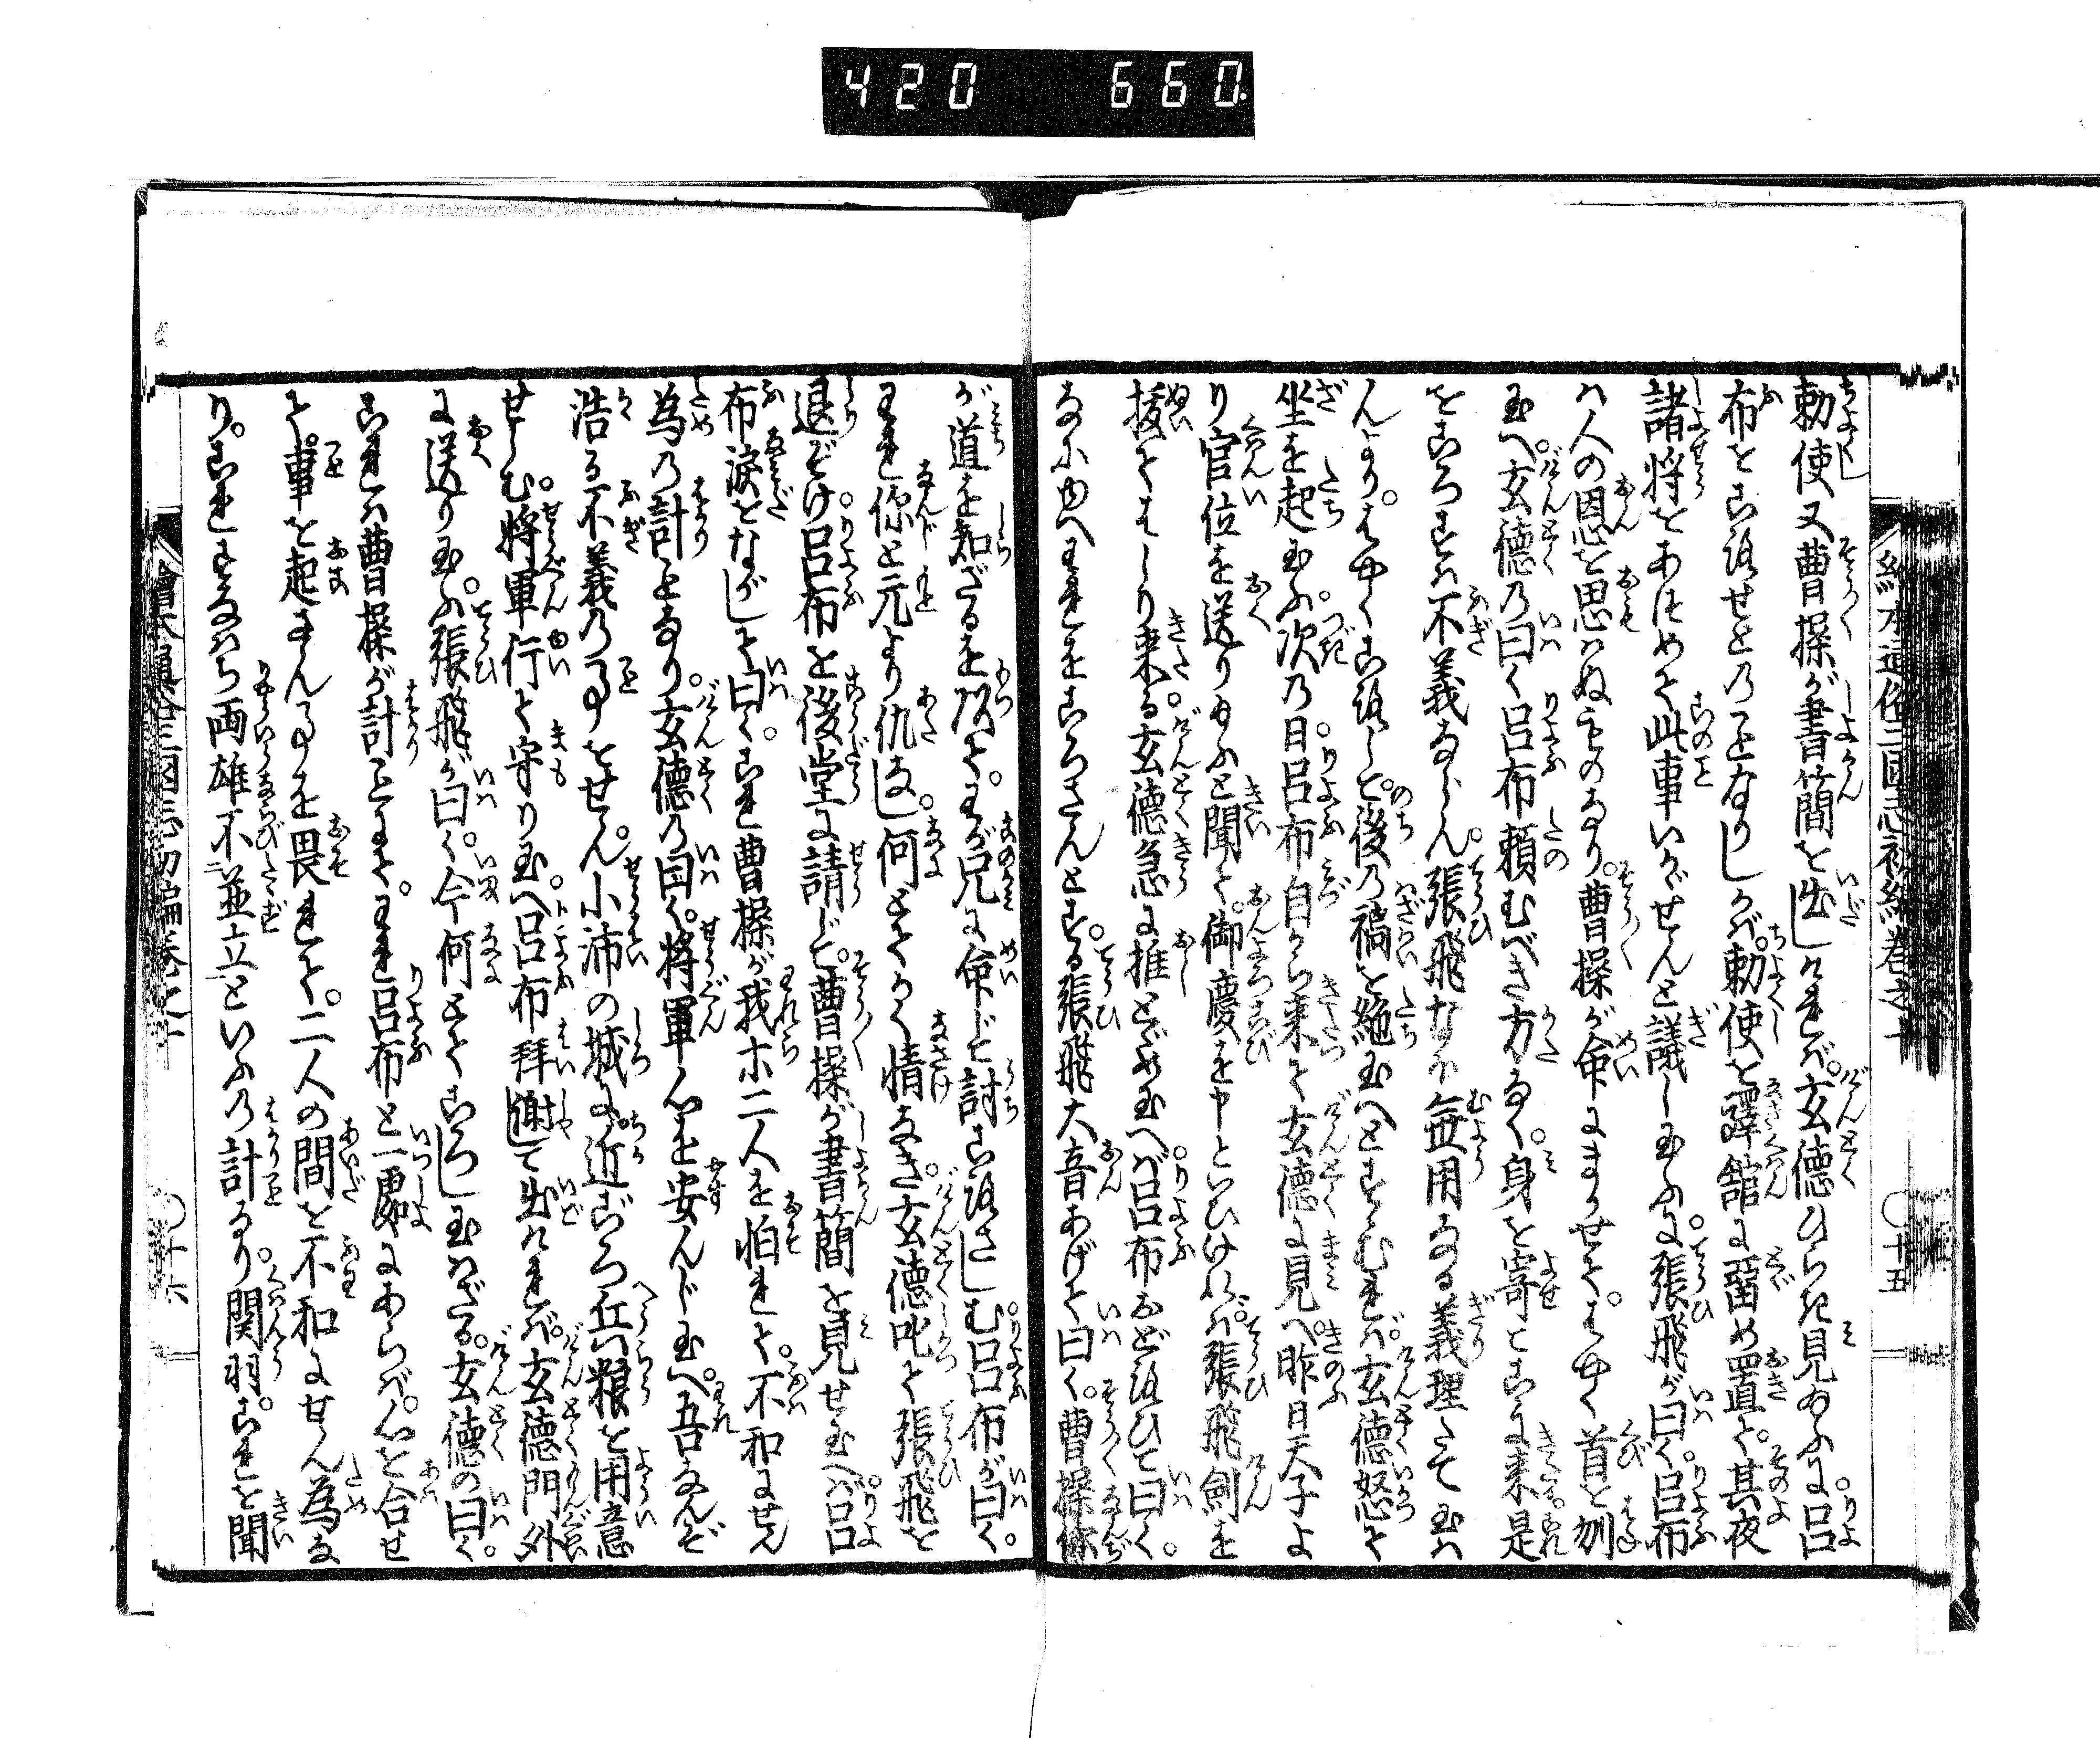 420 660.
繪本通俗三國志初編巻之十 〇十五
勅使又曹操が書簡を出しければ。玄徳ひらき見給ふに。呂
布をころせとの事なりしかば。勅使を驛舘に留め置て。其夜
諸将をあつめて此事いかゞせんと議し玉ふに。張飛が曰く。呂布
は人の恩を思はぬものなり。曹操が命にまかせて。はやく首を刎
玉へ。玄徳の曰く呂布頼むべき方なく。身を寄てこゝに来。是
をころすは不義ならん。張飛なほ無用なる義理たて玉は
んより。はやくころして。後の禍を絶玉へとすゝむれば。玄徳怒て
坐を起玉ふ。次の日。呂布自から来て玄徳に見へ。昨日天子よ
り官位を送り給ふと聞て。御慶を申といひければ。張飛劍を
援てはしり来る。玄徳急に推とゞめ玉へば。呂布おどろひて曰く。
なにゆへわれをころさんとする。張飛大音あげて曰く。曹操你
が道を知ざるを以て。わが兄に命じて討ころさしむ。呂布が曰く。
われ你と元より仇なし。何とてかく情なき。玄徳叱て張飛を
退ぞけ。呂布を後堂に請じて。曹操が書簡を見せ玉へば。呂
布涙をながして曰く。これ曹操が我ホ二人を怕れて。不和にせん
為の計となり。玄徳の曰く。将軍心を安んじ玉へ。吾なんぞ
浩る不義の事をせん。小沛の城に。近づく兵粮を用意
せしむ。将軍行て守り玉へ。呂布拜謝して出ければ。玄徳門外
に送り玉ふ。張飛が曰く。今何とてころし玉はざる。玄徳の曰く。
これは曹操が計にて。われ呂布と一處にあらば。心を合せ
て。事を起さん事を畏れて。二人の間を不和にせん為な
り。これすなはち両雄不並立といふの計なり。関羽。これを聞
繪本通俗三國志初編巻之十 〇十六